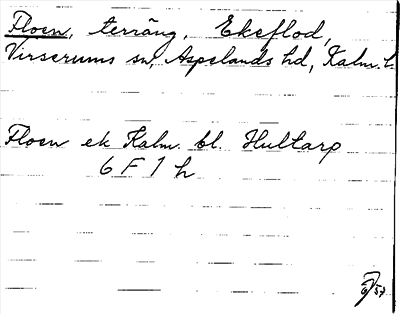 Floen, terräng, Ekeflod,
Virserums sn, Aspelands hd, Kalm. l.
Floen ek Kalm. bl. Hultarp
6 F 1 h